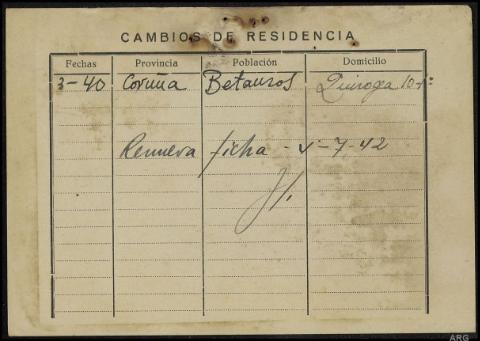 CAMBIOS DE RESIDENCIA
Fechas Provincia Población Domicilio
3-40 Coruña Betanzos Quiroga 10-1º
Renueva ficha - 4-7-42
ARG